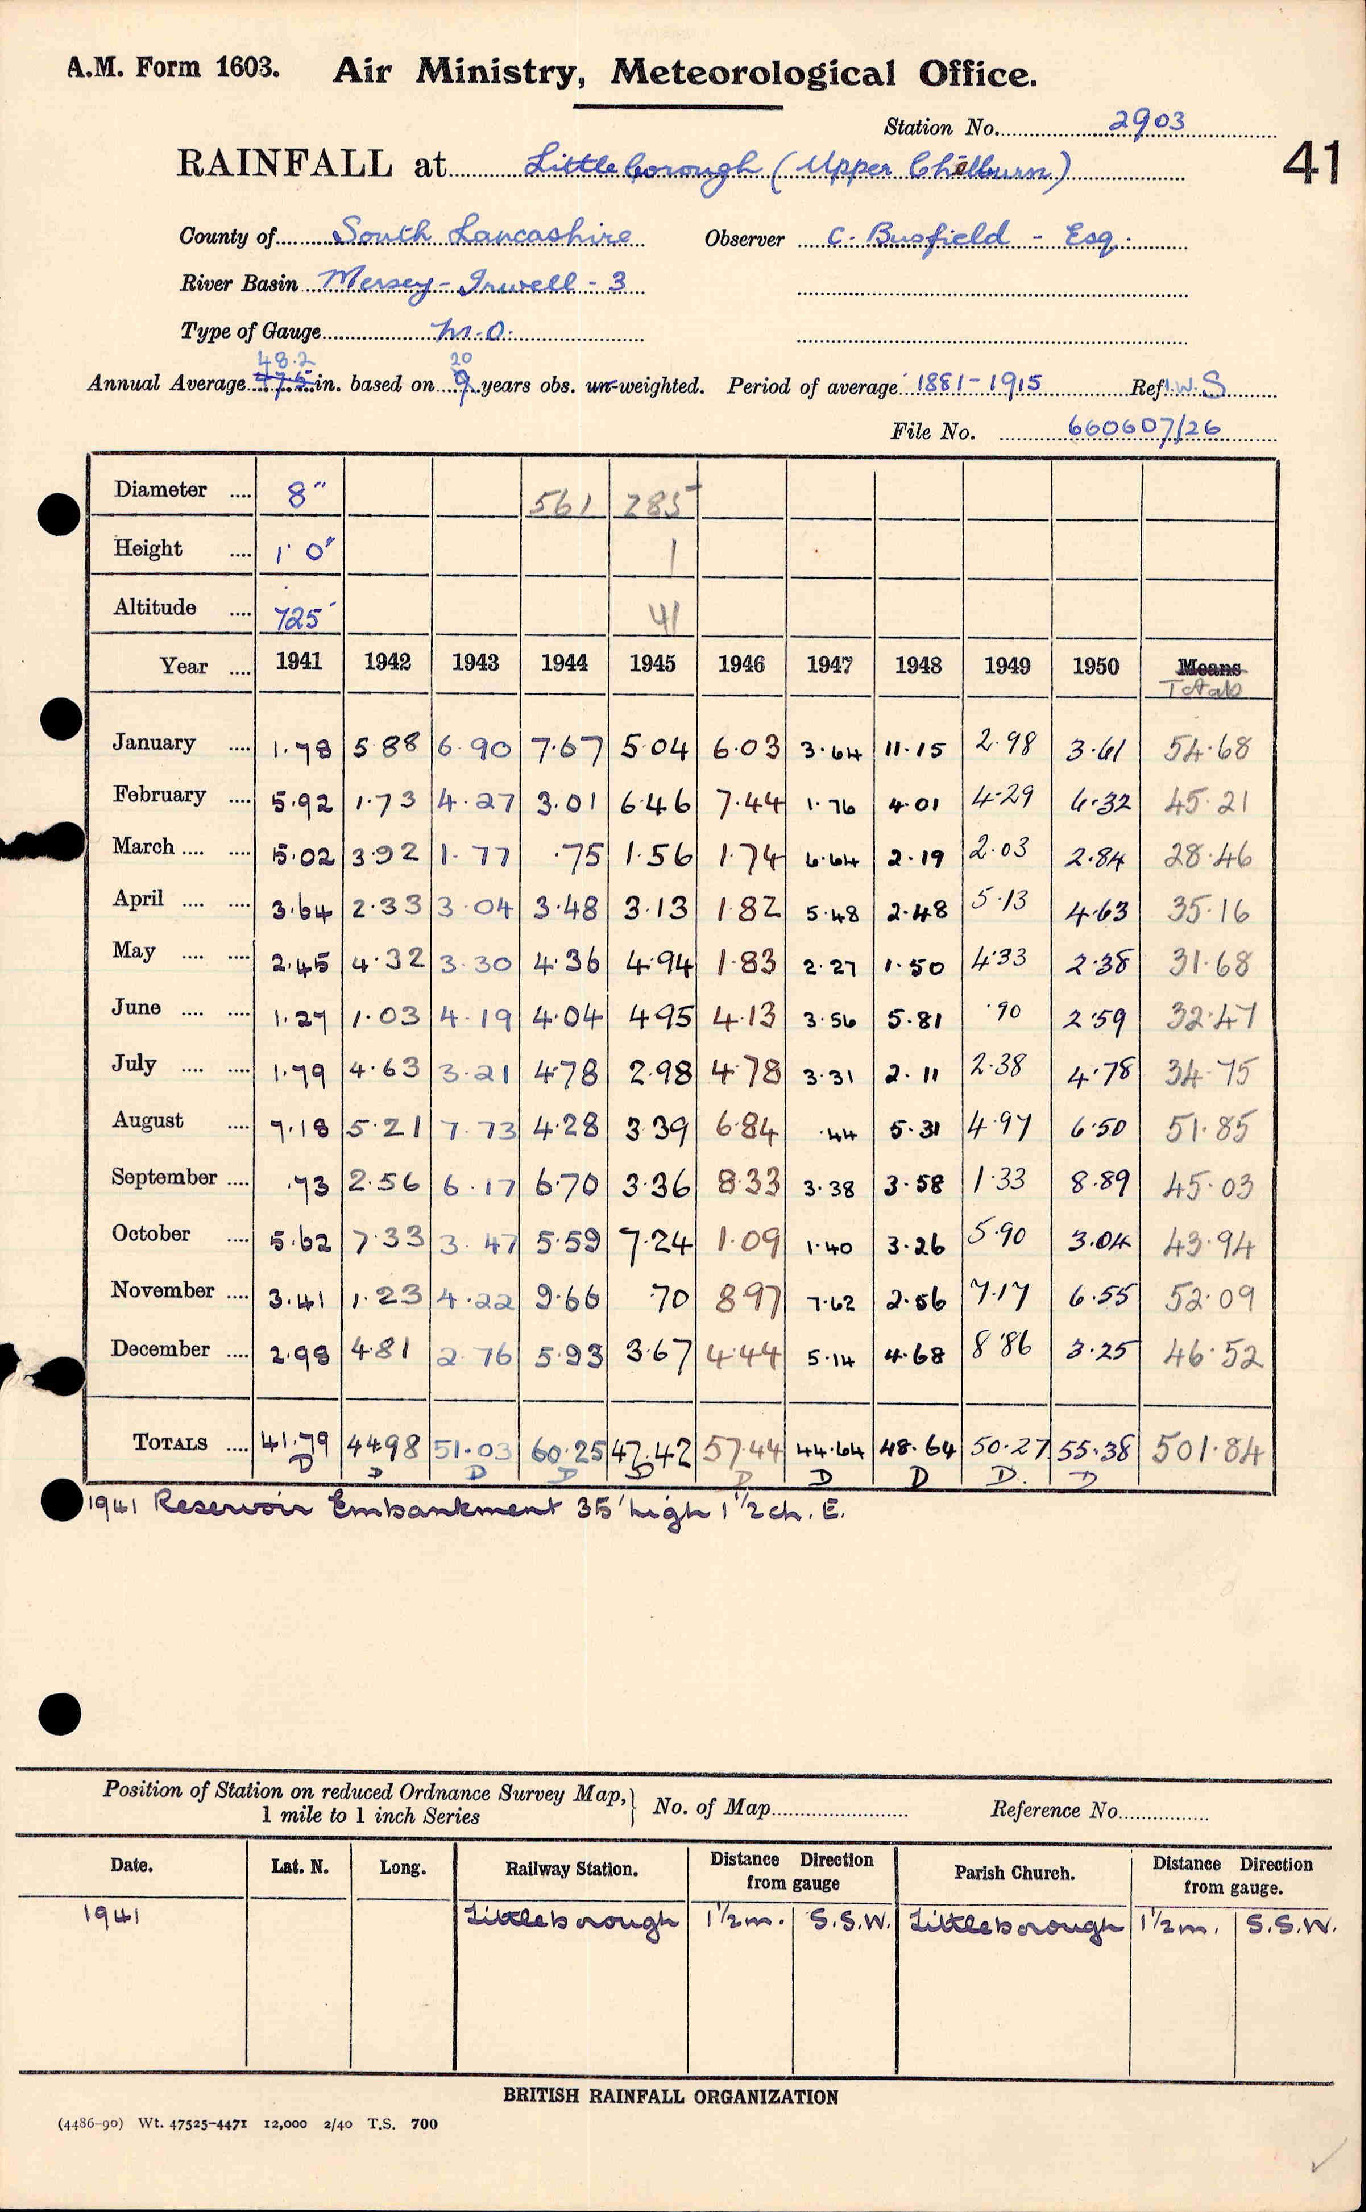 A.M. Form 1603. Air Ministry, Meteorological Office.
Station No. 2903
41
RAINFALL at Littleborough (Upper Chelburn)
County of South Lancashire Observer C. Busfield - Esq.
River Basin Mersey - Irwell - 3
Type of Gauge M.O.
48.2 20
Annual Average 47.5 in. based on 9 years obs. un-weighted. Period of average 1881-1915 Ref. I.W.S
File No. 660607/26
Diameter .... 8" 561 285
Height .... 1' 0" 1
Altitude .... 725' 41
Year .... 1941 1942 1943 1944 1945 1946 1947 1948 1949 1950 Means
Totals
January .... 1.78 5.88 6.90 7.67 5.04 6.03 3.64 11.15 2.98 3.61 54.68
February .... 5.92 1.73 4.27 3.01 6.46 7.44 1.76 4.01 4.29 6.32 45.21
March .... .... 5.02 3.92 1.77 .75 1.56 1.74 6.64 2.19 2.03 2.84 28.46
April .... .... 3.64 2.33 3.04 3.48 3.13 1.82 5.48 2.48 5.13 4.63 35.16
May .... .... 2.45 4.32 3.30 4.36 4.94 1.83 2.27 1.50 4.33 2.38 31.68
June .... .... 1.27 1.03 4.19 4.04 4.95 4.13 3.56 5.81 .90 2.59 32.47
July .... .... 1.79 4.63 3.21 4.78 2.98 4.78 3.31 2.11 2.38 4.78 34.75
August .... 7.18 5.21 7.73 4.28 3.39 6.84 .44 5.31 4.97 6.50 51.85
September .... .73 2.56 6.17 6.70 3.36 8.33 3.38 3.58 1.33 8.89 45.03
October .... 5.62 7.33 3.47 5.59 7.24 1.09 1.40 3.26 5.90 3.04 43.94
November .... 3.41 1.23 4.22 9.66 .70 8.97 7.62 2.56 7.17 6.55 52.09
December .... 2.98 4.81 2.76 5.93 3.67 4.44 5.14 4.68 8.86 3.25 46.52
TOTALS .... 41.79 44.98 51.03 60.25 47.42 57.44 44.64 48.64 50.27 55.38 501.84
D D D D D D D D D. D
1941 Reservoir Embankment 35' high 1 1/2 ch. E.
Position of Station on reduced Ordnance Survey Map, } No. of Map Reference No.
1 mile to 1 inch Series
Date. Lat. N. Long. Railway Station. Distance Direction from gauge Parish Church. Distance Direction from gauge.
1941 Littleborough 1 1/2 m. S.S.W. Littleborough 1 1/2 m. S.S.W.
BRITISH RAINFALL ORGANIZATION
(4486-90) Wt. 47525-4471 12,000 2/40 T.S. 700